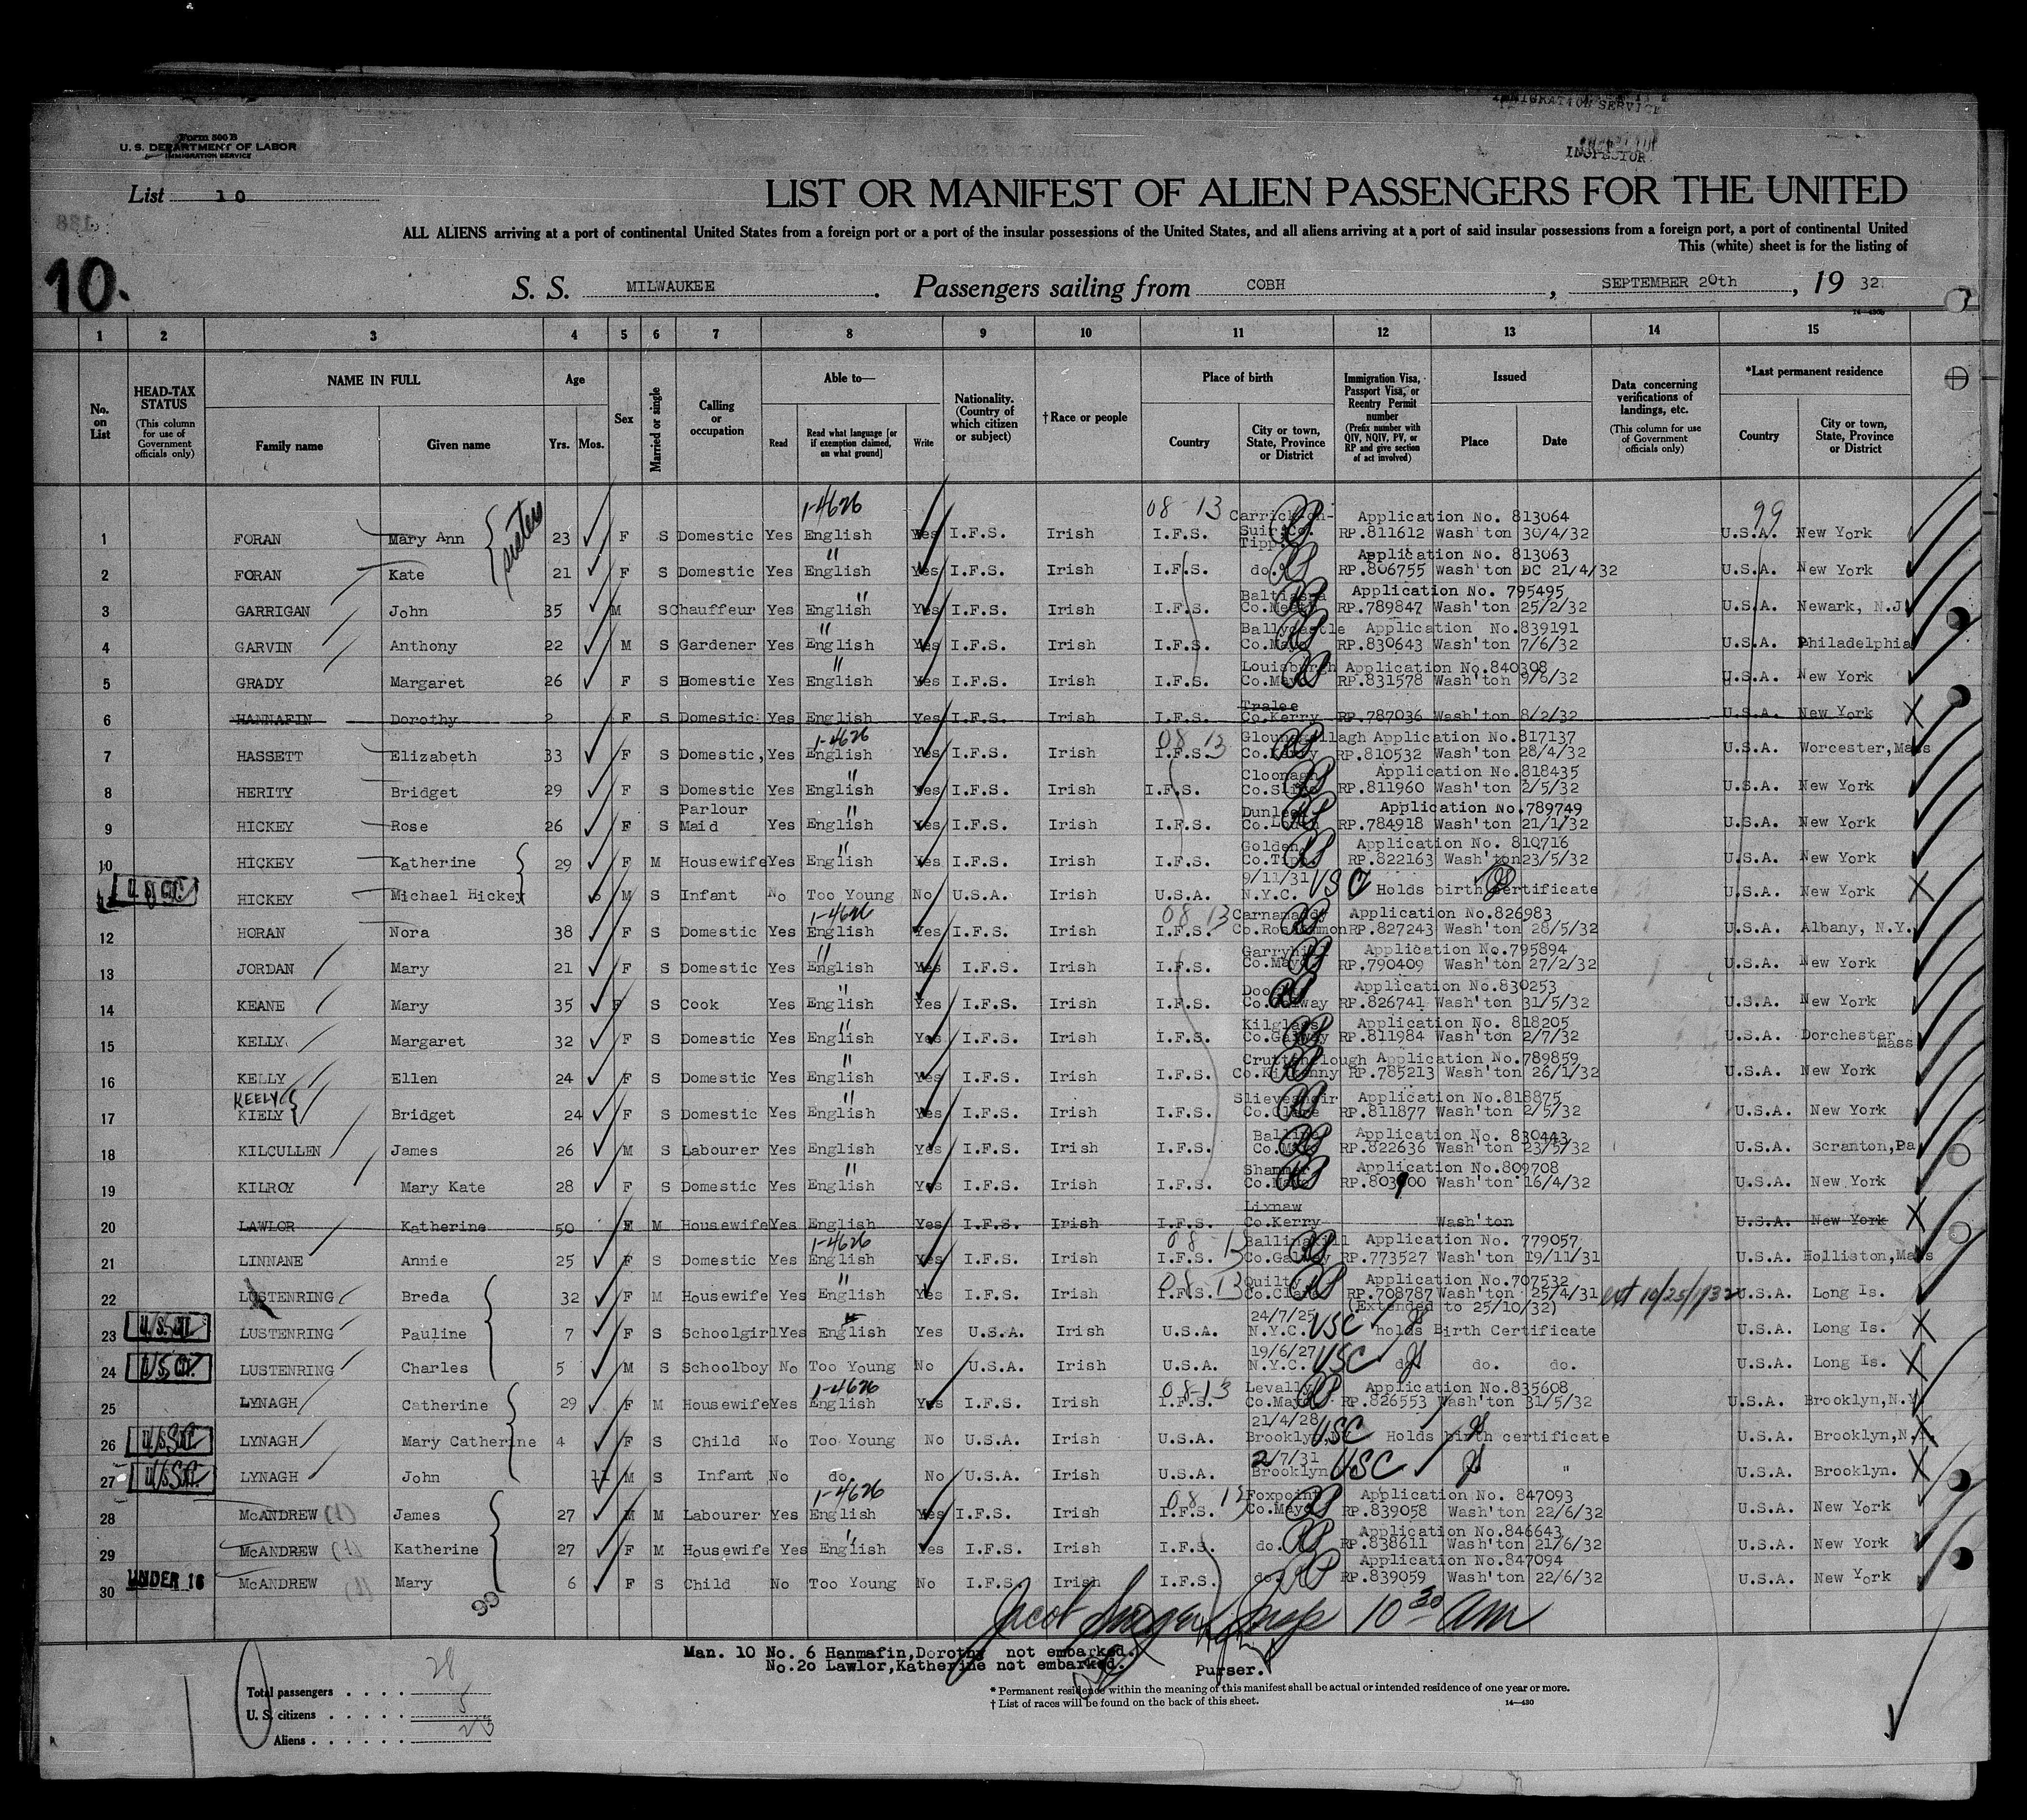 IMMIGRATION SERVICE
INSPECTOR
Form 500 B
U. S. DEPARTMENT OF LABOR
IMMIGRATION SERVICE
List 10
LIST OR MANIFEST OF ALIEN PASSENGERS FOR THE UNITED
ALL ALIENS arriving at a port of continental United States from a foreign port or a port of the insular possessions of the United States, and all aliens arriving at a port of said insular possessions from a foreign port, a port of continental United
This (white) sheet is for the listing of
10.
S. S. MILWAUKEE. Passengers sailing from COBH, SEPTEMBER 20th, 19 32
1 2 3 4 5 6 7 8 9 10 11 12 13 14 15
No. on List
HEAD-TAX STATUS (This column for use of Government officials only)
NAME IN FULL Family name Given name
Age Yrs. Mos.
Sex
Married or single
Calling or occupation
Able to— Read Read what language [or if exemption claimed, on what ground] Write
Nationality. (Country of which citizen or subject)
†Race or people
Place of birth Country City or town, State, Province or District
Immigration Visa, Passport Visa, or Reentry Permit number (Prefix number with QIV, NQIV, PV, or RP and give section of act involved)
Issued Place Date
Data concerning verifications of landings, etc. (This column for use of Government officials only)
*Last permanent residence Country City or town, State, Province or District
1-4626 08-13 Carrick-on- Application No. 813064 99
1 FORAN Mary Ann sisters 23 F S Domestic Yes English Yes I.F.S. Irish I.F.S. Suir Co. Tipp. RP.811612 Wash'ton 30/4/32 U.S.A. New York
Application No. 813063
2 FORAN Kate 21 F S Domestic Yes English " Yes I.F.S. Irish I.F.S. do. RP.806755 Wash'ton DC 21/4/32 U.S.A. New York
Application No. 795495
3 GARRIGAN John 35 M S Chauffeur Yes English " Yes I.F.S. Irish I.F.S. Co.Meath RP.789847 Wash'ton 25/2/32 U.S.A. Newark, N.J.
Ballycastle Application No.839191
4 GARVIN Anthony 22 M S Gardener Yes English " Yes I.F.S. Irish I.F.S. Co.Mayo RP.830643 Wash'ton 7/6/32 U.S.A. Philadelphia
Louisburgh Application No.840308
5 GRADY Margaret 26 F S Domestic Yes English " Yes I.F.S. Irish I.F.S. Co.Mayo RP.831578 Wash'ton 9/6/32 U.S.A. New York
Tralee
6 HANNAFIN Dorothy 2 F S Domestic Yes English Yes I.F.S. Irish I.F.S. Co.Kerry RP.787036 Wash'ton 8/2/32 U.S.A. New York X
1-4626 08 13 Application No.817137
7 HASSETT Elizabeth 33 F S Domestic, Yes English Yes I.F.S. Irish I.F.S. Co.Kerry RP.810532 Wash'ton 28/4/32 U.S.A. Worcester,Mass
Cloonagh Application No.818435
8 HERITY Bridget 29 F S Domestic Yes English " Yes I.F.S. Irish I.F.S. Co.Sligo RP.811960 Wash'ton 2/5/32 U.S.A. New York
Parlour Dunleer Application No.789749
9 HICKEY Rose 26 F S Maid Yes English " Yes I.F.S. Irish I.F.S. Co.Louth RP.784918 Wash'ton 21/1/32 U.S.A. New York
Golden Application No. 810716
10 HICKEY Katherine 29 F M Housewife Yes English " Yes I.F.S. Irish I.F.S. Co.Tipp. RP.822163 Wash'ton 23/5/32 U.S.A. New York
9/11/31
HICKEY Michael Hickey M S Infant No Too Young No U.S.A. Irish U.S.A. N.Y.C. USC Holds birth certificate U.S.A. New York X
1-4626 08 13 Application No.826983
12 HORAN Nora 38 F S Domestic Yes English Yes I.F.S. Irish I.F.S. Co.Roscommon RP.827243 Wash'ton 28/5/32 U.S.A. Albany, N.Y.
Application No.795894
13 JORDAN Mary 21 F S Domestic Yes English " Yes I.F.S. Irish I.F.S. Co.Mayo RP.790409 Wash'ton 27/2/32 U.S.A. New York
Application No.830253
14 KEANE Mary 35 F S Cook Yes English " Yes I.F.S. Irish I.F.S. Co.Galway RP.826741 Wash'ton 31/5/32 U.S.A. New York
Kilglass Application No. 818205
15 KELLY Margaret 32 F S Domestic Yes English " Yes I.F.S. Irish I.F.S. Co.Galway RP.811984 Wash'ton 2/7/32 U.S.A. Dorchester Mass
Application No.789859
16 KELLY Ellen 24 F S Domestic Yes English " Yes I.F.S. Irish I.F.S. Co.Kilkenny RP.785213 Wash'ton 26/1/32 U.S.A. New York
KEELY Application No.818875
17 KIELY Bridget 24 F S Domestic Yes English " Yes I.F.S. Irish I.F.S. Co.Clare RP.811877 Wash'ton 2/5/32 U.S.A. New York
Ballina Application No. 830443
18 KILCULLEN James 26 M S Labourer Yes English Yes I.F.S. Irish I.F.S. Co.Mayo RP.822636 Wash'ton 23/5/32 U.S.A. Scranton,Pa
Application No.809708
19 KILROY Mary Kate 28 F S Domestic Yes English " Yes I.F.S. Irish I.F.S. Co.Mayo RP.803900 Wash'ton 16/4/32 U.S.A. New York
Lixnaw
20 LAWLOR Katherine 50 F M Housewife Yes English Yes I.F.S. Irish I.F.S. Co.Kerry Wash'ton U.S.A. New York X
1-4626 08 13 Ballinakill Application No. 779057
21 LINNANE Annie 25 F S Domestic Yes English Yes I.F.S. Irish I.F.S. Co.Galway RP.773527 Wash'ton 19/11/31 U.S.A. Holliston,Mass
08 13 Quilty Application No.707532
22 LUSTENRING Breda 32 F M Housewife Yes English " Yes I.F.S. Irish I.F.S. Co.Clare RP.708787 Wash'ton 25/4/31 ext 10/25/1932 U.S.A. Long Is.
24/7/25 (Extended to 25/10/32)
23 LUSTENRING Pauline 7 F S Schoolgirl Yes English Yes U.S.A. Irish U.S.A. N.Y.C. USC holds Birth Certificate U.S.A. Long Is. X
19/6/27
24 LUSTENRING Charles 5 M S Schoolboy No Too Young No U.S.A. Irish U.S.A. N.Y.C. USC do. do. do. U.S.A. Long Is. X
1-4626 08-13 Levally Application No.835608
25 LYNAGH Catherine 29 F M Housewife Yes English Yes I.F.S. Irish I.F.S. Co.Mayo RP.826553 Wash'ton 31/5/32 U.S.A. Brooklyn,N.Y
21/4/28
26 LYNAGH Mary Catherine 4 F S Child No Too Young No U.S.A. Irish U.S.A. Brooklyn USC Holds birth certificate U.S.A. Brooklyn,N.Y. X
2/7/31
27 LYNAGH John 11 M S Infant No do. No U.S.A. Irish U.S.A. Brooklyn USC " U.S.A. Brooklyn. X
1-4626 08 13 Foxpoint Application No. 847093
28 McANDREW (1) James 27 M M Labourer Yes English Yes I.F.S. Irish I.F.S. Co.Mayo RP.839058 Wash'ton 22/6/32 U.S.A. New York
Application No.846643
29 McANDREW (1) Katherine 27 F M Housewife Yes English Yes I.F.S. Irish I.F.S. do. RP.838611 Wash'ton 21/6/32 U.S.A. New York
Application No.847094
30 UNDER 16 McANDREW (1) Mary 6 F S Child No Too Young No I.F.S. Irish I.F.S. do. RP.839059 Wash'ton 22/6/32 U.S.A. New York
99
Jacob Insp 10 30 AM
Man. 10 No. 6 Hanmafin,Dorothy not embarked.
No.20 Lawlor,Katherine not embarked.
Purser.
Total passengers 28
U. S. citizens 5
Aliens 23
* Permanent residence within the meaning of this manifest shall be actual or intended residence of one year or more.
† List of races will be found on the back of this sheet.
14—430